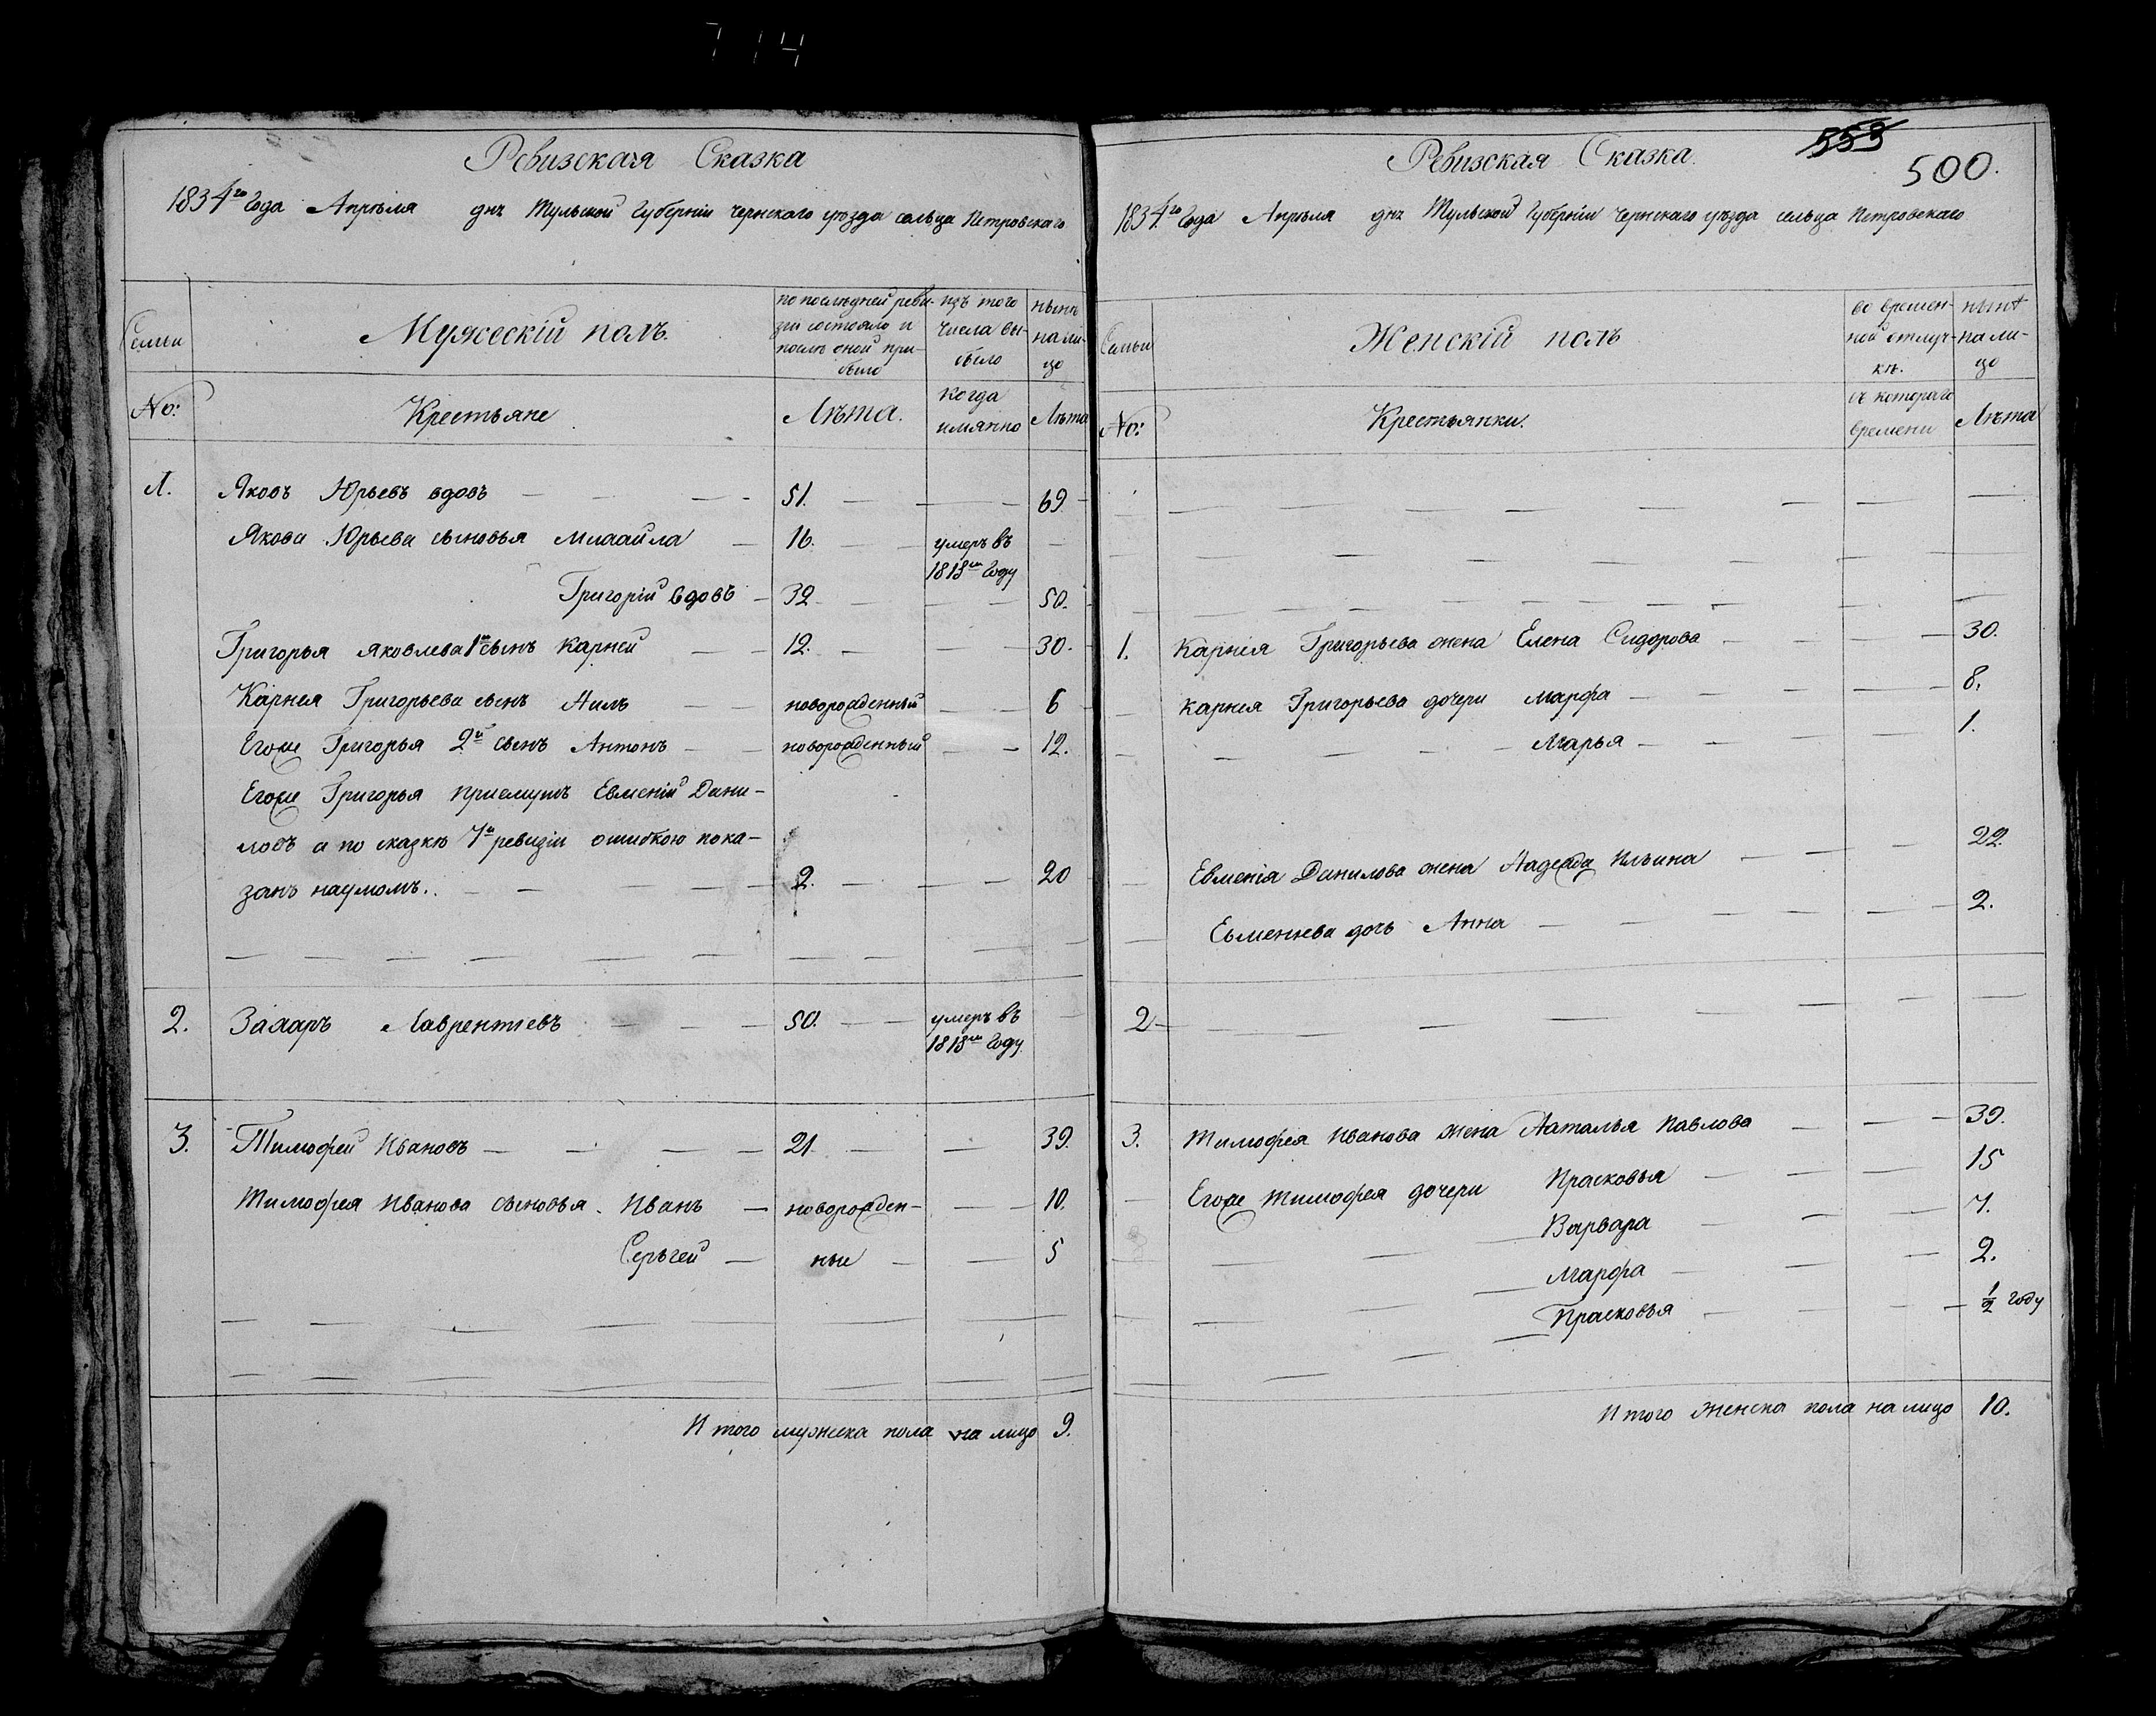 714
Ревизская Сказка
1834го Года Апреля дня Тульской Губерніи Чернскаго уѣзда сельца Петровскаго
Семьи
Мужескій полъ.
по послѣдней реви-
зіи состояло и
послѣ оной при-
было
изъ того
числа вы-
было
нынѣ
на ли-
цо
No:
Крестьяне
Лѣта.
когда
имянно
Лѣта
1. Яковъ Юрьевъ вдовъ 51. 69
Якова Юрьева сыновья Михайла 16. умеръ въ
1818м Году
Григорій вдовъ 32 50.
Григорья Яковлева 1й сынъ Карней 12. 30.
Карнея Григорьева сынъ Нилъ новорожденный 6
Егоже Григорья 2й сынъ Антонъ новорожденный 12.
Егоже Григорья приемышъ Евменій Дани-
ловъ а по сказке 7й ревизіи ошибкою пока-
занъ наумомъ. 2. 20
2. Захаръ Лаврентьевъ 50. умеръ въ
1818м Году
3. Тимофей Ивановъ 21. 39.
Тимофея Иванова сыновья. Иванъ новорожден- 10.
Серьгей ные 5
Итого мужеска пола на лицо 9.
Ревизская Сказка.
553
500.
1834го Года Апреля дня Тульской Губерніи Чернскаго уѣзда сельца Петровскаго
Семьи
Женскій полъ
во времен-
ной отлуч-
кѣ.
нынѣ
на ли-
цо
No:
Крестьянки.
съ котораго
времени
Лѣта
1. Карнея Григорьева жена Елена Сидорова 30.
Карнея Григорьева дочери Марфа 8.
Марья 1.
Евменія Данилова жена Надежда Ильина 22.
Евменнева дочь Анна 2.
2
3. Тимофея Иванова жена Наталья Павлова 39.
Егоже Тимофея дочери Прасковья 15
Варвара 7.
Марфа 2.
Прасковья 1/2 году
Итого женска пола на лицо 10.